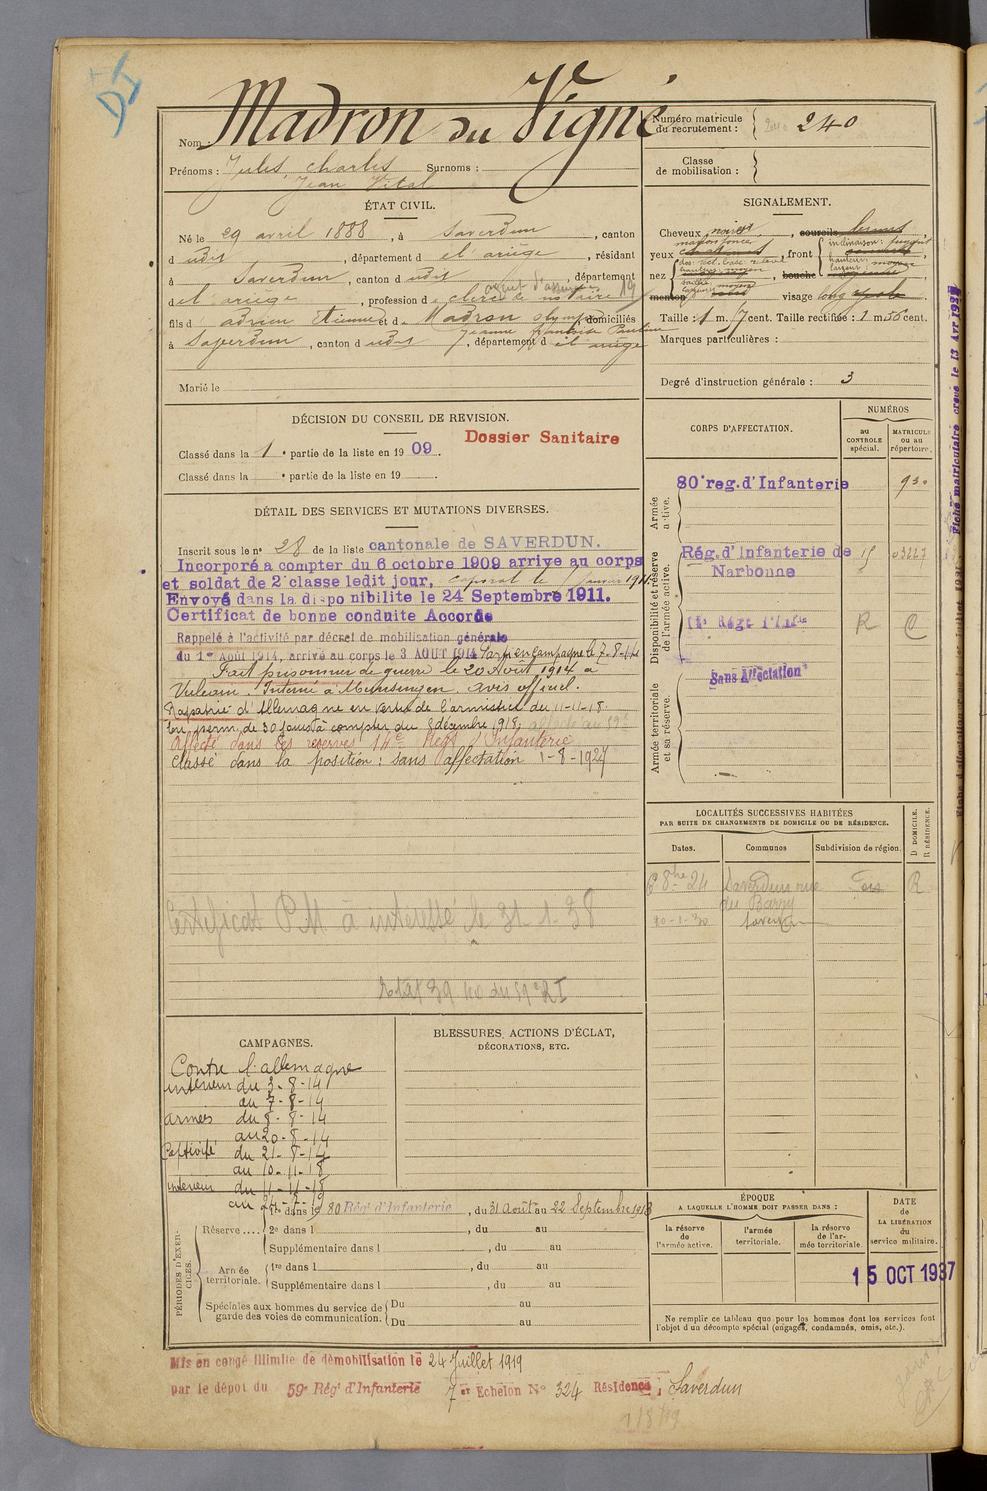 Nom : Madron du Vigné
Prénoms : Jules, Charles Surnoms :
Jean Vital
Numéro matricule
du recrutement : 240
Classe
de mobilisation :
ÉTAT CIVIL.
Né le 29 avril 1888, à Saverdun, canton
d udit, département d el ariège, résidant
à Saverdun, canton d udit département
d el ariège, profession d e clerc de notaire 19
fils d adrien Etienne et d e Madron olympe, domiciliés
Jeanne
à Saverdun, canton d udit, département d el ariège
Marié le
SIGNALEMENT.
Cheveux noirs, sourcils bruns,
yeux marron foncé, front inclinaison: fuyant
hauteur: moyen
largeur: moyen
nez dos: rect. base: relevé, bouche moyenne
saillie moyen
largeur
menton visage long ovale
Taille : 1 m. 57 cent. Taille rectifiée : 1 m 56 cent.
Marques particulières :
Degré d'instruction générale : 3
DÉCISION DU CONSEIL DE REVISION.
Dossier Sanitaire
Classé dans la 1 e partie de la liste en 1909.
Classé dans la e partie de la liste en 19
CORPS D'AFFECTATION.
NUMÉROS
au
CONTROLE
spécial.
MATRICULE
ou au
répertoire.
Armée
active.
80e reg. d'Infanterie 930
Disponibilité et réserve
de l'armée active.
Rég. d'Infanterie de 15 03227
Narbonne
14e Régt d'Infie R C
Armée territoriale
et sa réserve.
Sans Affectation
DÉTAIL DES SERVICES ET MUTATIONS DIVERSES.
Inscrit sous le n° 28 de la liste cantonale de SAVERDUN.
Incorporé a compter du 6 octobre 1909 arrive au corps
et soldat de 2e classe ledit jour, caporal le
Envoyé dans la disponibilite le 24 Septembre 1911.
Certificat de bonne conduite Accordé
Rappelé à l'activité par décret de mobilisation générale
du 1er Août 1914, arrivé au corps le 3 AOUT 1914 Parti en campagne le 7-8-14
Fait prisonnier de guerre le 20 Août 1914 à
Vulcain. Interné à Munsingen. avis officiel.
Rapatrié d'Allemagne en vertu de l'armistice du 11-11-18.
en perm. de 30 jours à compter du 8 décembre 1918, affecté au 59e
Affecté dans les réserves 14e Régt d'Infanterie
Classé dans la position : sans affectation 1-8-1927
Certificat P.M à intéressé le 31.1.38
LOCALITÉS SUCCESSIVES HABITÉES
PAR SUITE DE CHANGEMENTS DE DOMICILE OU DE RÉSIDENCE.
Dates. Communes Subdivision de région.
D DOMICILE.
R RÉSIDENCE.
6 8bre 24 Saverdun rue Foix R
du Barry
20-1-30 Saverdun
CAMPAGNES.
Contre l'allemagne
intérieur du 3-8-14
au 7-8-14
armées du 8-8-14
au 20-8-14
Captivité du 21-8-14
au 10-11-18
intérieur du 11-11-18
BLESSURES, ACTIONS D'ÉCLAT,
DÉCORATIONS, ETC.
PÉRIODES D'EXER-
CICES.
Réserve....
1re dans le 80 Rég' d'Infanterie, du 31 Août au 22 Septembre 1913
2e dans l , du au
Supplémentaire dans l , du au
Armée
territoriale.
1re dans l , du au
Supplémentaire dans l , du au
Spéciales aux hommes du service de
garde des voies de communication.
Du au
Du au
ÉPOQUE
A LAQUELLE L'HOMME DOIT PASSER DANS :
la réserve
de
l'armée active.
l'armée
territoriale.
la réserve
de l'ar-
mée territoriale.
DATE
de
LA LIBÉRATION
du
service militaire.
15 OCT 1937
Ne remplir ce tableau que pour les hommes dont les services font
l'objet d'un décompte spécial (engagés, condamnés, omis, etc.).
Mis en congé illimité de démobilisation le 24 Juillet 1919
par le dépôt du 59e Rég' d'Infanterie 7 er Echelon N° 324 Résidence ; Saverdun